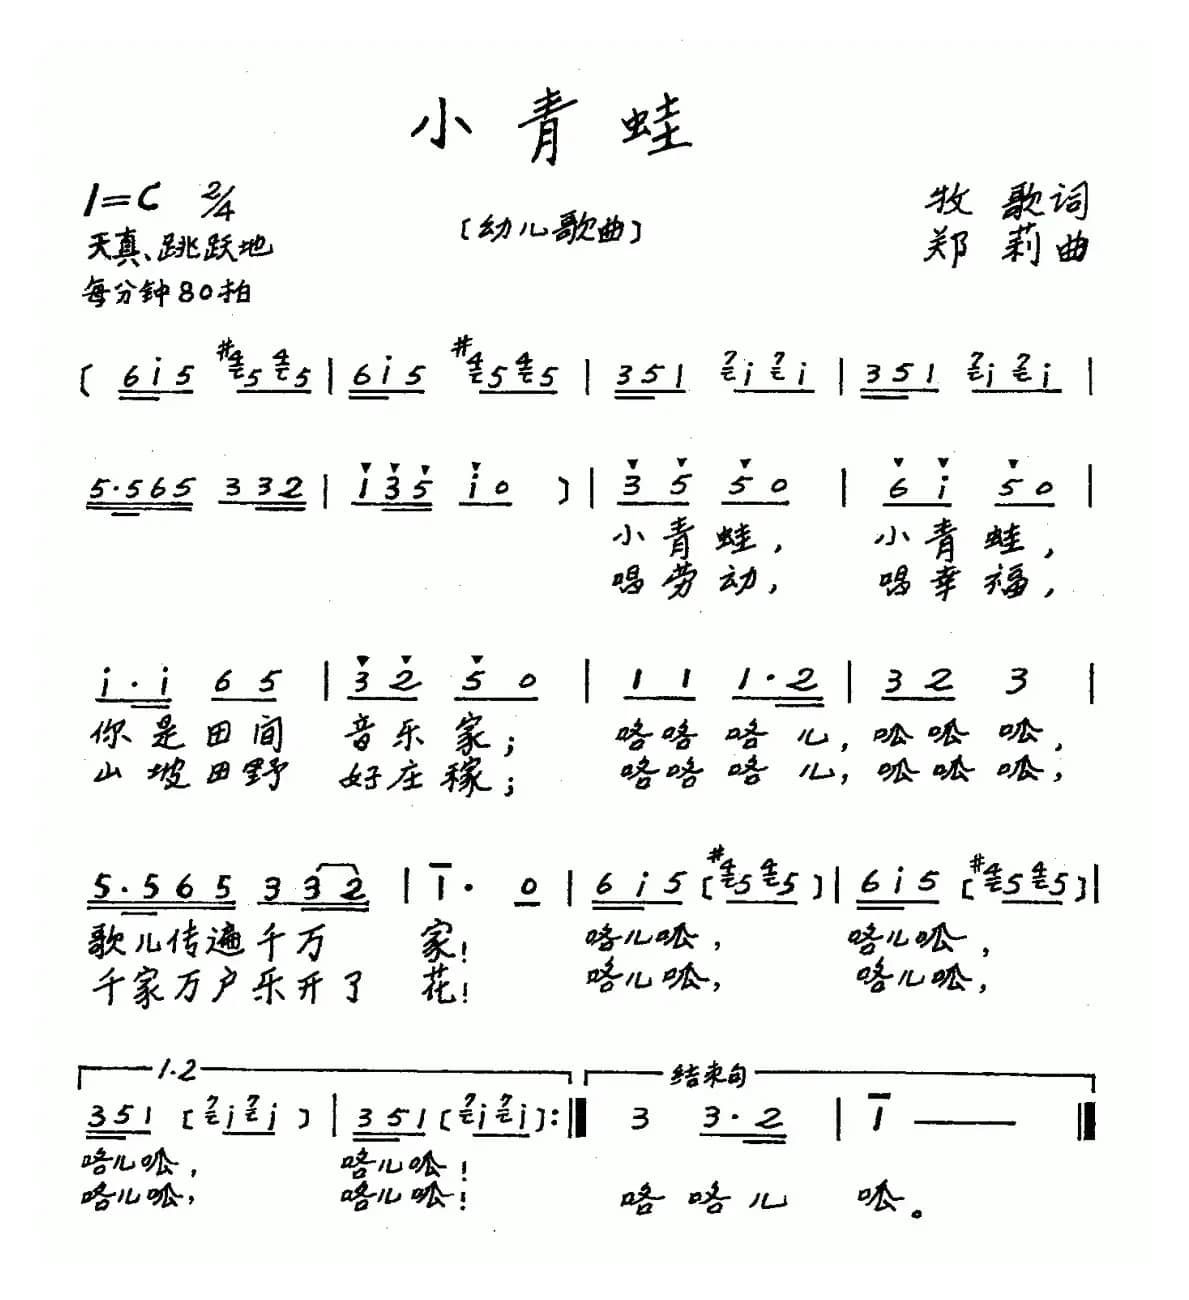 小青蛙
1=C 2/4
〔幼儿歌曲〕
牧 歌词
天真、跳跃地
郑 莉曲
每分钟80拍
〔 6i5 #4 5 4 5 | 6i5 #4 5 4 5 | 351 7 i 7 i | 351 7 i 7 i |
5·565 332 | i35 i0 〕| 3 5 5 0 | 6 i 5 0 |
小青蛙, 小青蛙,
唱劳动, 唱幸福,
i·i 6 5 | 3 2 5 0 | 1 1 1·2 | 3 2 3 |
你是田间 音乐家; 咯咯咯儿, 呱呱呱,
山坡田野 好庄稼; 咯咯咯儿, 呱呱呱,
5·565 332 | 1· 0 | 6i5 〔#4 5 4 5〕| 6i5 〔#4 5 4 5〕|
歌儿传遍千万 家! 咯儿呱, 咯儿呱,
千家万户乐开了 花! 咯儿呱, 咯儿呱,
1.2 结束句
351 〔7 i 7 i〕| 351 〔7 i 7 i〕:‖ 3 3·2 | 1 — ‖
咯儿呱, 咯儿呱!
咯儿呱, 咯儿呱! 咯咯儿 呱。